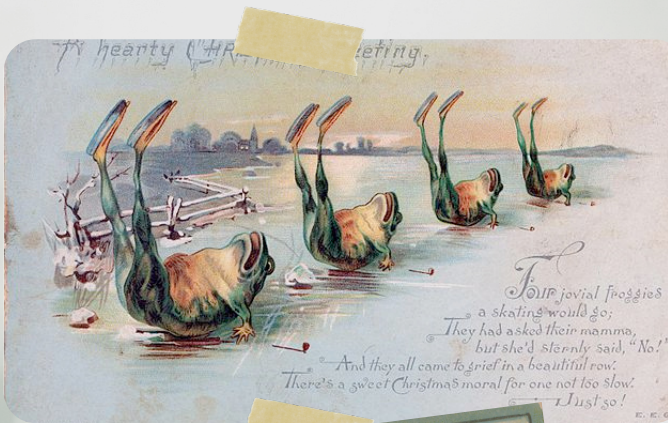 A hearty CHR eeting.
Four jovial froggies
a skating would go;
They had asked their mamma,
but she'd sternly said, "No!"
And they all came to grief in a beautiful row.
There's a sweet Christmas moral for one not too slow.
Just so!
E. E. G